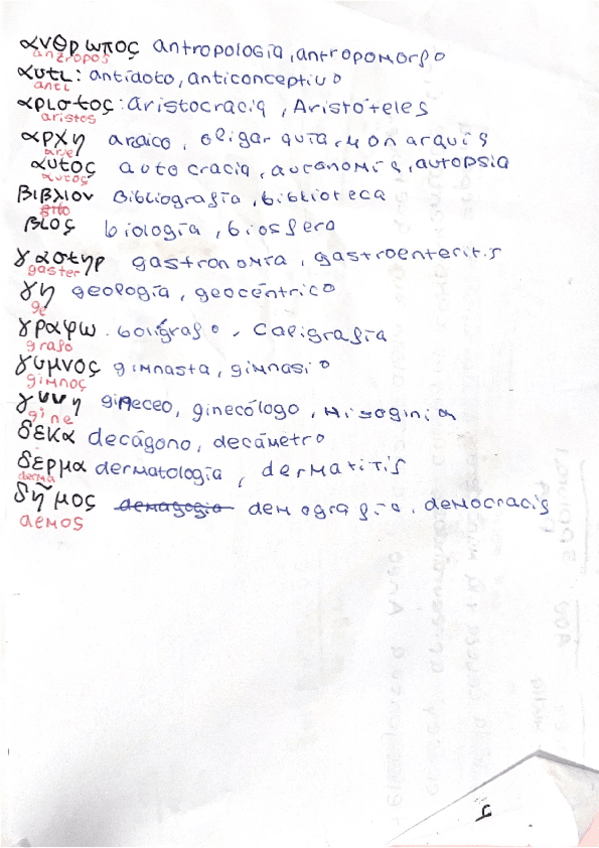 ανθρωπος antropología, antropomorfo
antropos
αντι: antídoto, anticonceptivo
anti
αριστος: aristocracia, Aristóteles
aristos
αρχη arcaico, oligarquía, monarquía
arje
αυτος autocracia, autonomía, autopsia
autos
βιβλιον Bibliografía, biblioteca
βιος biología, biosfera
γαστηρ gastronomía, gastroenteritis
gaster
γη geología, geocéntrico
ge
γραφω bolígrafo, Caligrafía
grafo
γυμνος gimnasta, gimnasio
gimnos
γυνη gineceo, ginecólogo, misoginia
gine
δεκα decágono, decámetro
δερμα dermatología, dermatitis
derma
δημος demagogia demografía, democracia
demos